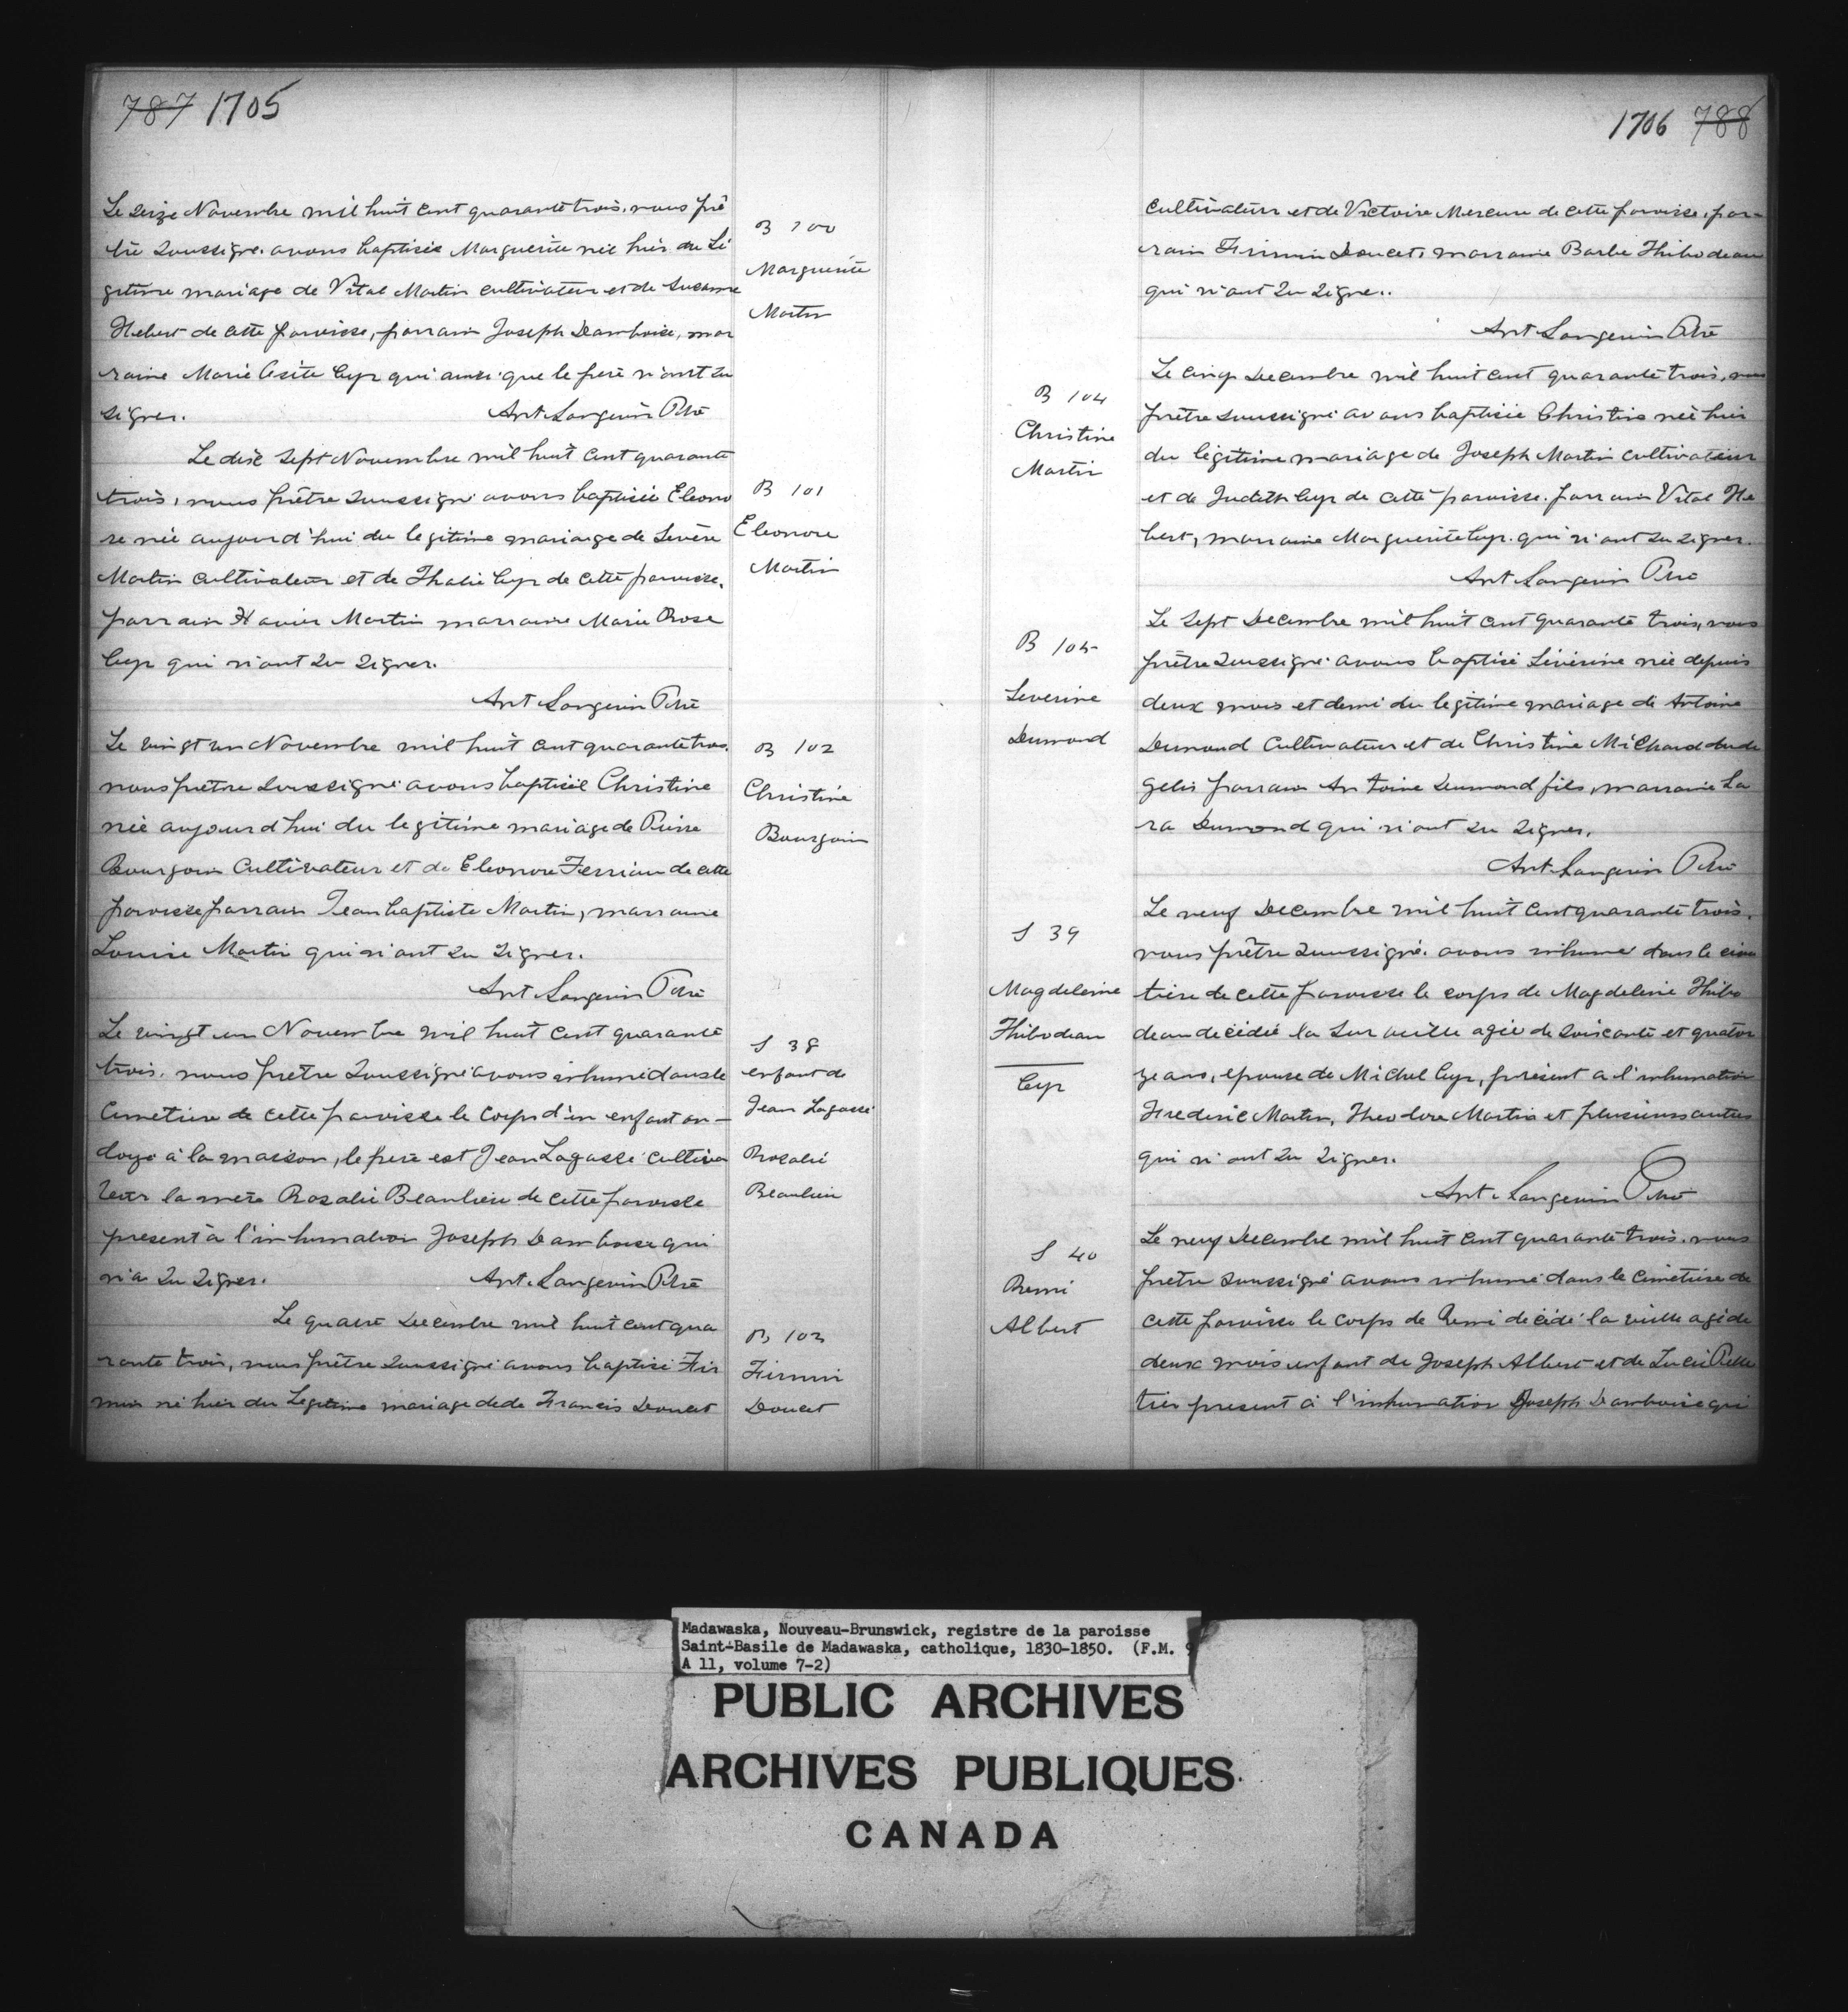 787 1705
Le Seize Novembre mil huit cent quarante trois, nous prê
tre soussigné avons baptisée Marguerite née hier du Lé
gitime mariage de Vital Martin cultivateur et de Susanne
Hebert de cette paroisse, parrain Joseph Damboise, mar
raine Marie Cyr qui ainsi que le père n'ont su
signer. Ant Langevin Ptre
B 100
Marguerite
Martin
Le dix Sept Novembre mil huit cent quarante
trois, nous prêtre soussigné avons baptisée Eleono
re née aujourd'hui du legitime mariage de Sevère
Martin cultivateur et de Thalie Cyr de cette paroisse.
parrain Xavier Martin marraine Marie Rose
Cyr qui n'ont su signer.
Ant Langevin Ptre
B 101
Eleonore
Martin
Le vingt un Novembre mil huit cent quarante trois
nous prêtre soussigné avons baptisée Christine
née aujourd'hui du legitime mariage de Pierre
Bourgoin Cultivateur et de Eleonore Terriau de cette
paroisse parrain Jean baptiste Martin, marraine
Louise Martin qui n'ont su signer.
Ant Langevin Ptre
B 102
Christine
Bourgoin
Le vingt un Novembre mil huit cent quarante
trois, nous prêtre soussigné avons inhumé dans le
Cimetiere de cette paroisse le corps d'un enfant on-
doyé à la maison, le pere est Jean Lagassé cultiva
teur la mère Rosalie Beaulieu de cette paroisse
present à l'inhumation Joseph Damboise qui
n'a su signer. Ant. Langevin Ptre
S 38
enfant de
Jean Lagassé
Rosalie
Beaulieu
Le quatre Decembre mil huit cent qua
rante trois, nous prêtre soussigné avons baptisé Fir
min né hier du Legitime mariage de de Francis Doucet
B 103
Firmin
Doucet
1706 788
cultivateur et de Victoire Mercure de cette paroisse, par-
rain Firmin Doucet, marraine Barbe Thibodeau
qui n'ont su signer.
Ant Langevin Ptre
B 104
Christine
Martin
Le cinq Decembre mil huit cent quarante trois, nous
prêtre soussigné avons baptisée Christine née hier
du légitime mariage de Joseph Martin cultivateur
et de Judith Cyr de cette paroisse. parrain Vital He
bert, marraine Marguerite Cyr. qui n'ont su signer.
Ant Langevin Ptre
B 105
Severine
Dumond
Le Sept Decembre mil huit cent quarante trois, nous
prêtre soussigné avons baptisé Sévérine née depuis
deux mois et demi du legitime mariage de Antoine
Dumond Cultivateur et de Christine Michaud du de
gelis parrain Antoine Dumond fils, marraine La
ra Dumond qui n'ont su signer.
Ant Langevin Ptre
S 39
Magdeleine
Thibodeau
Cyr
Le neuf Decembre mil huit cent quarante trois.
nous prêtre soussigné. avons inhumé dans le cime
tière de cette paroisse le corps de Magdeleine Thibo
deau decédée la surveille agée de soixante et quator
ze ans, epouse de Michel Cyr, présent a l'inhumation
Frederic Martin, Theodore Martin et plusieurs autres
qui n'ont su signer.
Ant. Langevin Ptre
S 40
Remi
Albert
Le neuf Decembre mil huit cent quarante trois. nous
prêtre soussigné avons inhumé dans le Cimetière de
cette paroisse le corps de Remi decédé la veille agé de
deux mois enfant de Joseph Albert et de Lucie Pelle
tier present à l'inhumation Joseph Damboise qui
Madawaska, Nouveau-Brunswick, registre de la paroisse
Saint-Basile de Madawaska, catholique, 1830-1850. (F.M. 9
A 11, volume 7-2)
PUBLIC ARCHIVES
ARCHIVES PUBLIQUES
CANADA